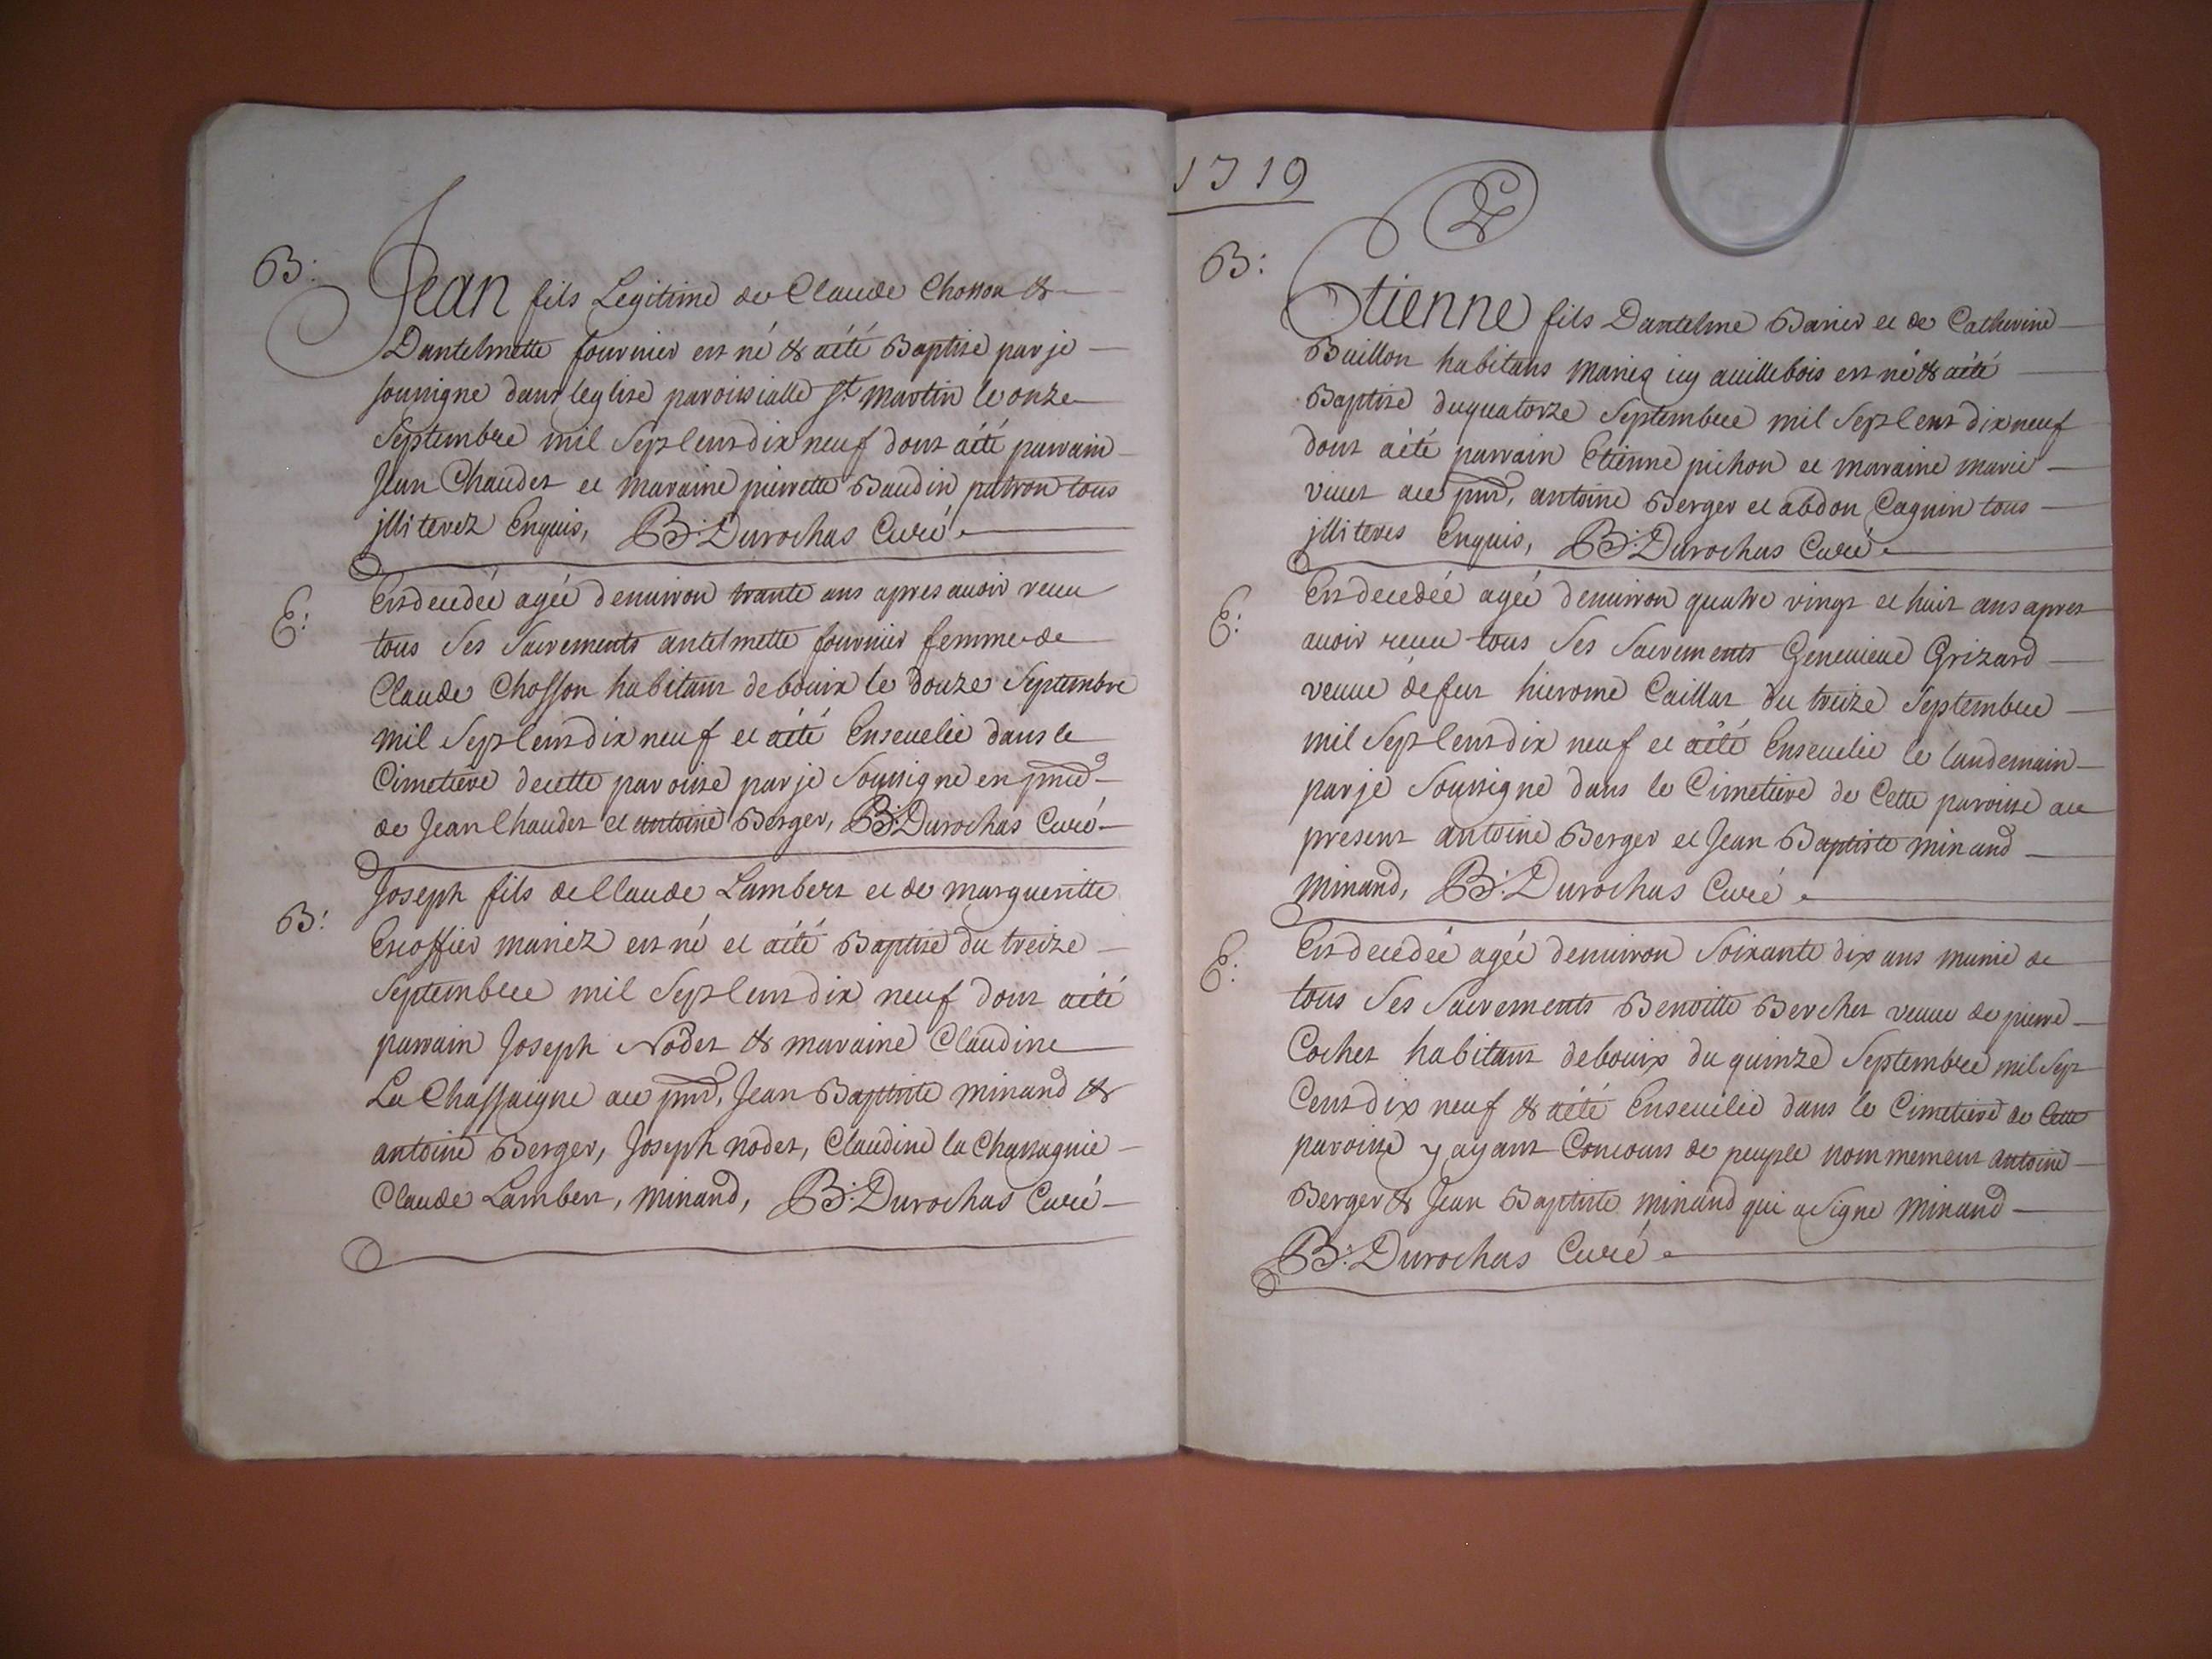 B:
Jean fils Legitime de Claude Chosson &
Dantelmette fournier est né & aété Baptise par je
soussigne dans leglise paroissialle St martin le onze
Septembre mil Sept cent dix neuf dont aété parrain
Jean Chaudet et maraine pierrette Baudin patron tous
jlliterez Enquis, B: Durochas Curé
E:
Est decedée agée denuiron trante ans apres auoir receu
tous Ses Sacrements antelmette fournier femme de
Claude Chosson habitant de bouix le douze Septembre
mil Sept cent dix neuf et aété Enseuelie dans le
Cimetiere de cette paroisse par je Soussigne en pnce
de Jean Chaudet et antoine Berger, B: Durochas Curé
B:
Joseph fils de Claude Lambert et de margueritte
Escoffier mariez est né et aété Baptise du treize
Septembre mil Sept cent dix neuf dont aété
parrain Joseph Nodet & maraine Claudine
La Chassaigne au pnd, Jean Baptiste minand &
antoine Berger, Joseph nodet, Claudine la Chassagnie
Claude Lambert, minand, B: Durochas Curé
1719
B:
Etienne fils Dantelme Barier et de Catherine
Buillon habitans mariez icy est né & aété
Baptise du quatorze Septembre mil Sept cent dix neuf
dont aété parrain Etienne pichon et maraine marie
au pnd, antoine Berger et abdon Cagnin tous
jlliteres Enquis, B: Durochas Curé
E:
Est decedée agée denuiron quatre vingt et huit ans apres
auoir receu tous Ses Sacrements Geneuieue Grizard
veuue de fut hierome Caillat du treize Septembre
mil Sept cent dix neuf et aété Enseuelie le landemain
par je Soussigne dans le Cimetiere de Cette paroisse au
present antoine Berger et Jean Baptiste minand
minand, B: Durochas Curé
E:
Est decedée agée denuiron Soixante dix ans munie de
tous Ses Sacrements Benoitte Berchet veuue de pierre
Cochet habitant de bouix du quinze Septembre mil Sept
Cent dix neuf & aété Enseuelie dans le Cimetiere de Cette
paroisse y ayant Concours de peuple nommement antoine
Berger & Jean Baptiste minand qui a Signe minand
B: Durochas Curé